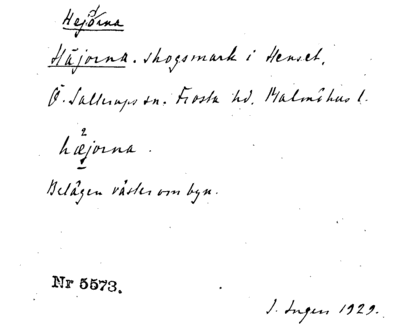 Hejorna
Häjorna. skogsmark i Henset,
Ö. Sallerups sn. Frosta hd. Malmöhus l.
hæjorna.
Belägen väster om byn.
Nr 5573.
J. Ingers 1929.